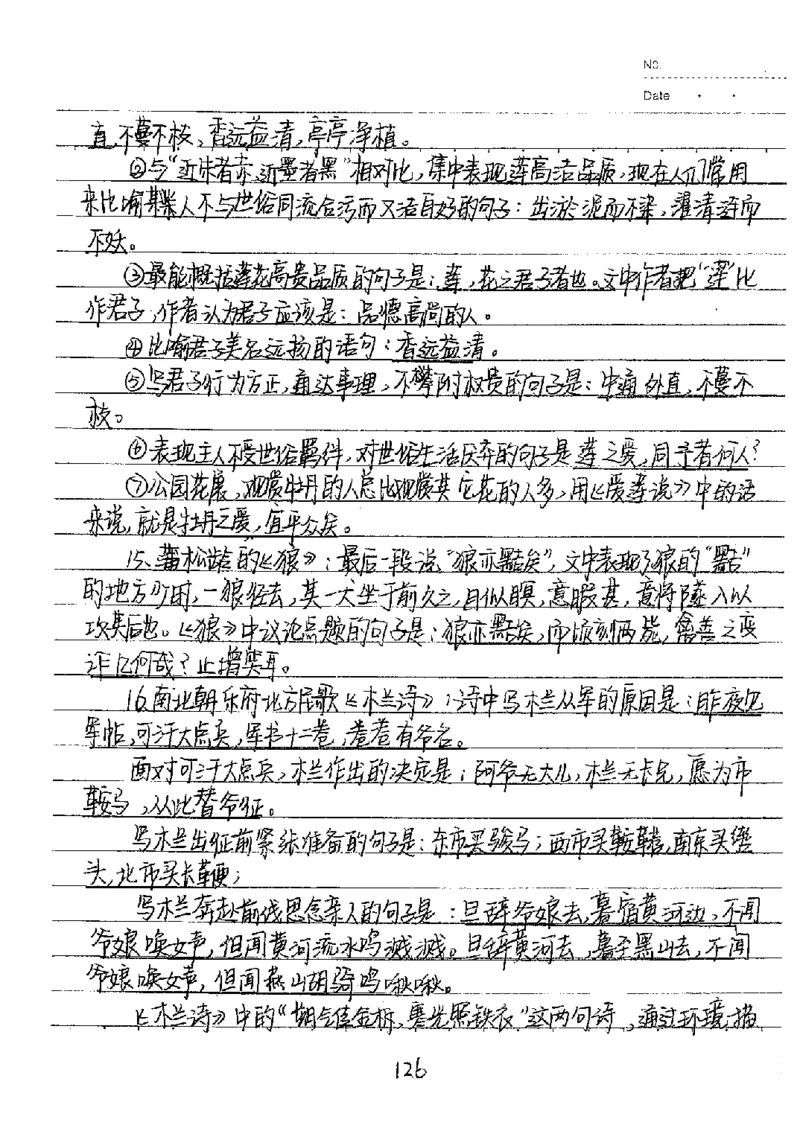 No.
Date
直,不蔓不枝,香远益清,亭亭净植。
②与“近朱者赤,近墨者黑”相对比,集中表现莲高洁品质,现在人们常用
来比喻某些人不与世俗同流合污而又洁身自好的句子:出淤泥而不染,濯清涟而
不妖。
③最能概括莲花高贵品质的句子是:莲,花之君子者也。文中作者把“莲”比
作君子,作者认为君子应该是:品德高尚的人。
④比喻君子美名远扬的语句:香远益清。
⑤写君子行为方正,通达事理,不攀附权贵的句子是:中通外直,不蔓不
枝。
⑥表现主人不受世俗羁绊,对世俗生活厌弃的句子是莲之爱,同予者何人?
⑦公园花展,观赏牡丹的人总比观赏其它花的人多,用《爱莲说》中的话
来说,就是牡丹之爱,宜乎众矣。
15、蒲松龄的《狼》:最后一段说“狼亦黠矣”,文中表现了狼的“黠”
的地方少时,一狼径去,其一犬坐于前久之,目似瞑,意暇甚,意将隧入以
攻其后也。《狼》中议论点题的句子是:狼亦黠矣,而顷刻两毙,禽兽之变
诈几何哉?止增笑耳。
16、南北朝乐府北方民歌《木兰诗》:诗中写木兰从军的原因是:昨夜见
军帖,可汗大点兵,军书十二卷,卷卷有爷名。
面对可汗大点兵,木兰作出的决定是:阿爷无大儿,木兰无长兄,愿为市
鞍马,从此替爷征。
写木兰出征前紧张准备的句子是:东市买骏马;西市买鞍鞯,南市买辔
头,北市买长鞭;
写木兰奔赴前线思念亲人的句子是:旦辞爷娘去,暮宿黄河边,不闻
爷娘唤女声,但闻黄河流水鸣溅溅。旦辞黄河去,暮至黑山去,不闻
爷娘唤女声,但闻燕山胡骑鸣啾啾。
《木兰诗》中的“朔气传金柝,寒光照铁衣”这两句诗,通过环境描
126